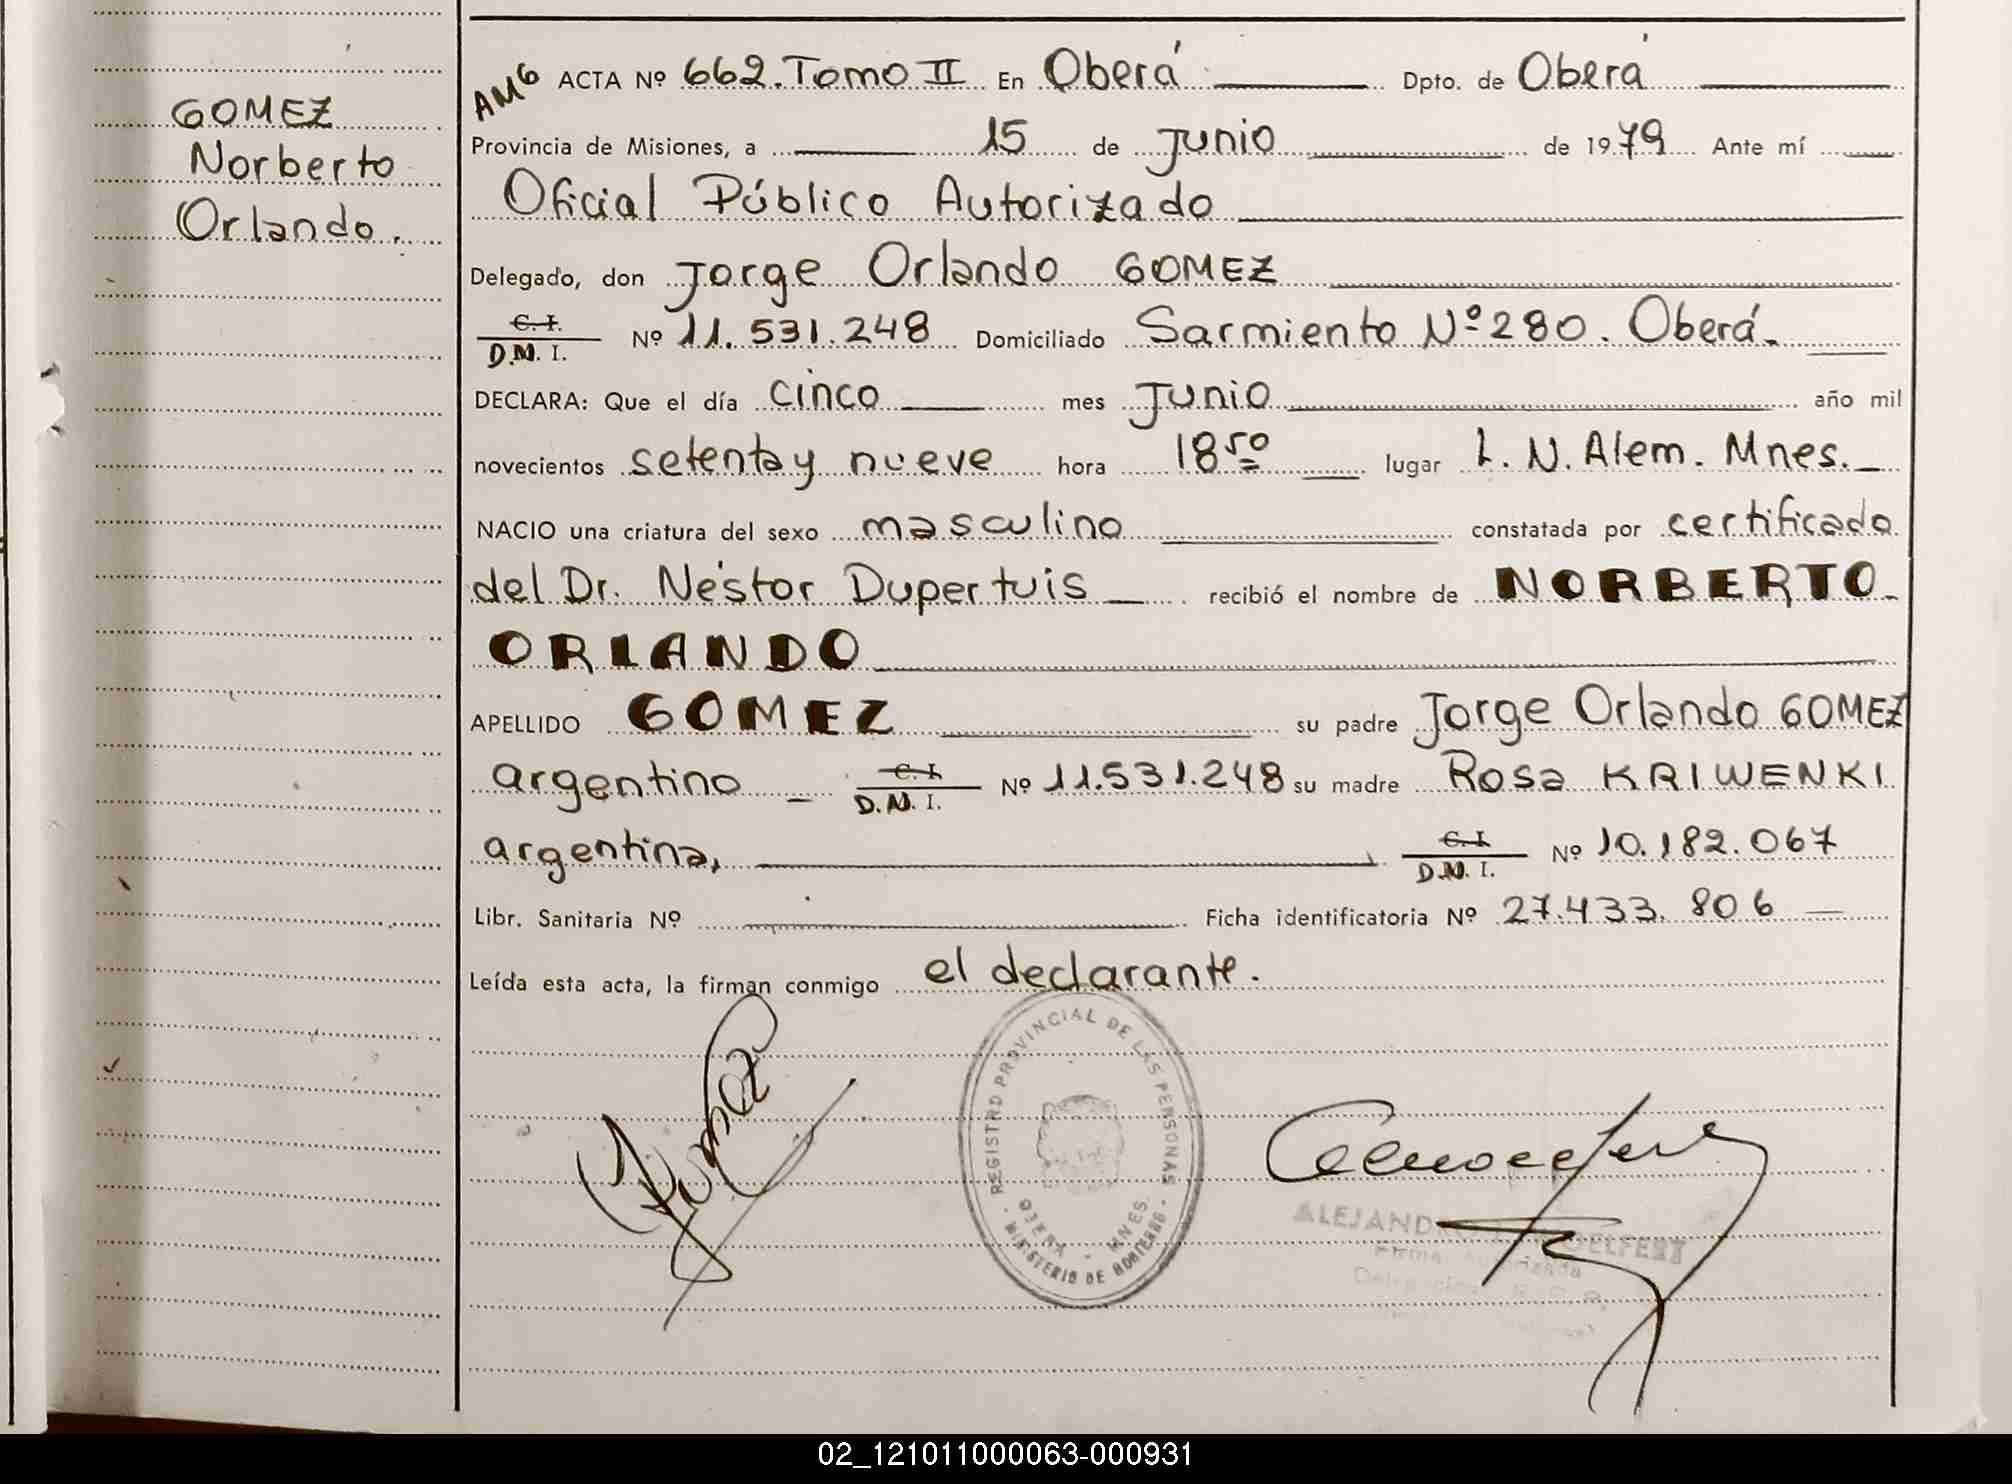 GOMEZ
Norberto
Orlando.
AMG ACTA Nº 662. Tomo II En Oberá Dpto. de Oberá
Provincia de Misiones, a 15 de Junio de 1979 Ante mí
Oficial Público Autorizado
Delegado, don Jorge Orlando GOMEZ
C.I.
D.N.I. Nº 11.531.248 Domiciliado Sarmiento Nº 280. Oberá.
DECLARA: Que el día cinco mes Junio año mil
novecientos setenta y nueve hora 18 50 lugar L. N. Alem. Mnes.
NACIO una criatura del sexo masculino constatada por certificado
del Dr. Néstor Dupertuis recibió el nombre de NORBERTO
ORLANDO
APELLIDO GOMEZ su padre Jorge Orlando GOMEZ
argentino C.I. D.N.I. Nº 11.531.248 su madre Rosa KRIWENKI
argentina, C.I. D.N.I. Nº 10.182.067
Libr. Sanitaria Nº Ficha identificatoria Nº 27.433.806
Leída esta acta, la firman conmigo el declarante.
REGISTRO PROVINCIAL DE LAS PERSONAS
OBERA - MNES.
MINISTERIO DE GOBIERNO
ALEJANDRO
Firma Autorizada
02_121011000063-000931